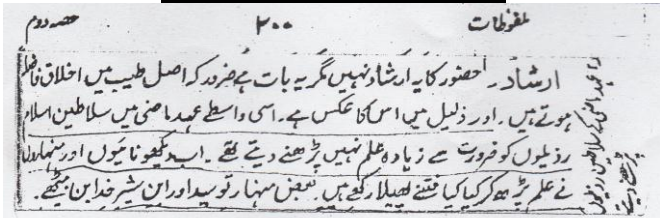 ملفوظات ۲۰۰ حصہ دوم
ارشاد۔ حضور کا یہ ارشاد نہیں مگر یہ بات ہے ضرور کہ اصل طیب میں اخلاق فاضلہ
ہوتے ہیں۔ اور رذیل میں اس کا عکس ہے۔ اسی واسطے عہد ماضی میں سلاطین اسلام
رذیلوں کو ضرورت سے زیادہ علم نہیں پڑھنے دیتے تھے۔ اب دیکھو نائیوں اور منہاروں
نے علم پڑھ کر کیا کیا فتنے پھیلا رکھے ہیں۔ بعض منہار تو سید اور ابن شیر خدا بن بیٹھے۔
عہد ماضی کے سلاطین رذیلوں